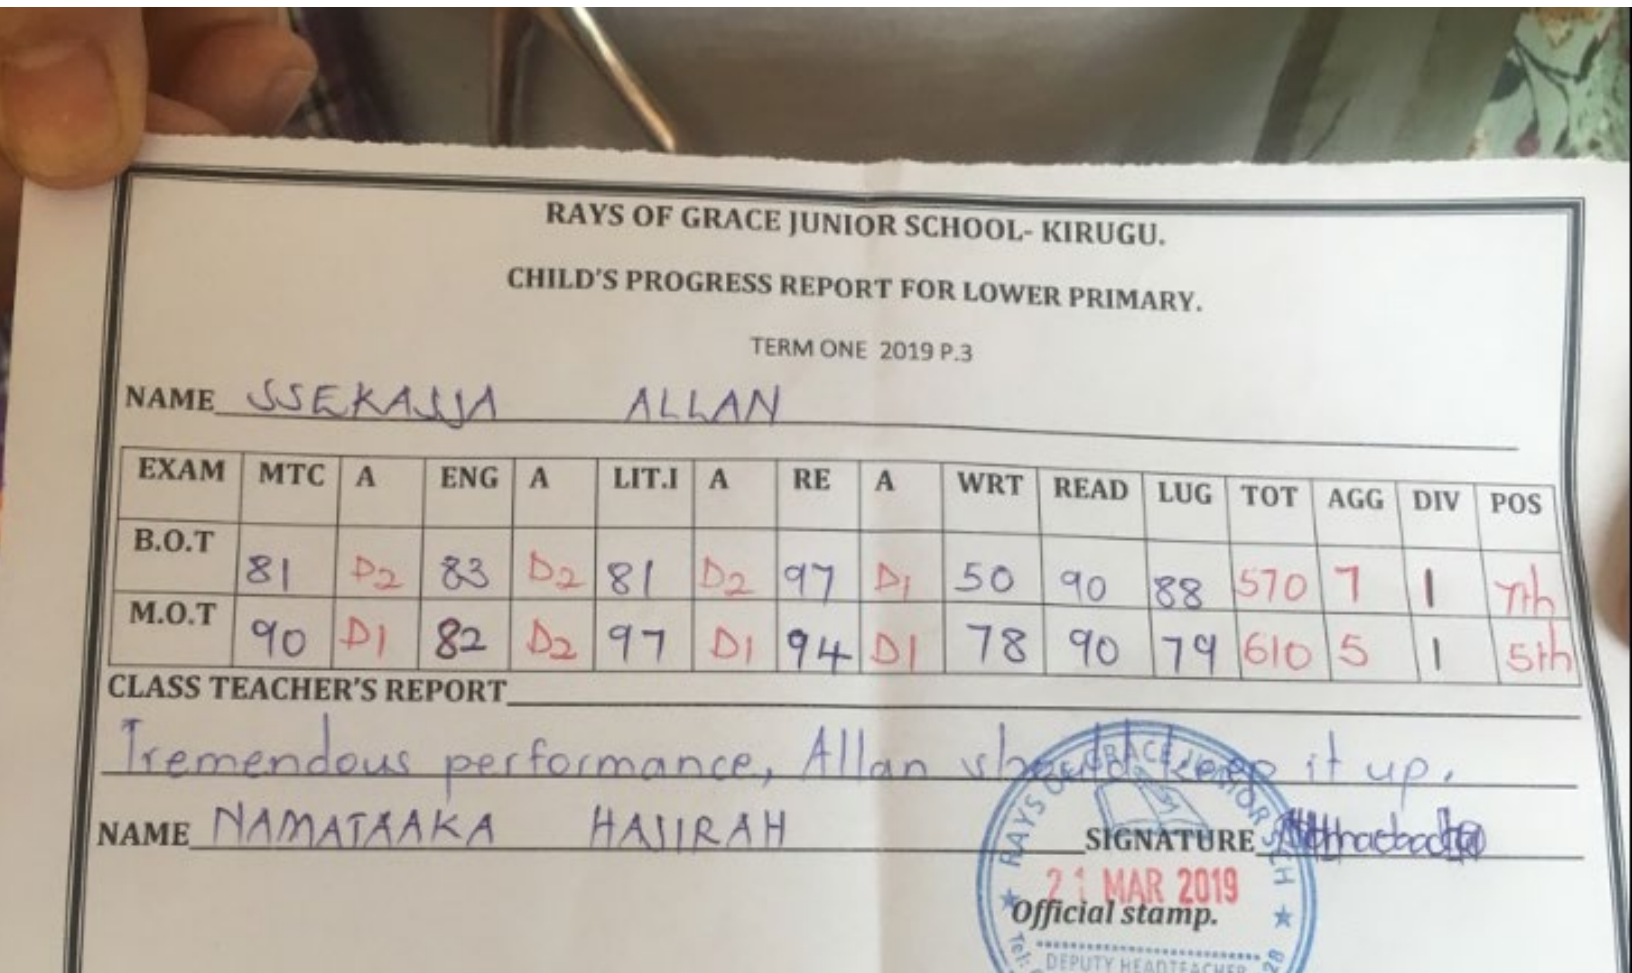 RAYS OF GRACE JUNIOR SCHOOL- KIRUGU.
CHILD'S PROGRESS REPORT FOR LOWER PRIMARY.
TERM ONE 2019 P.3
NAME SSEKAJJA ALLAN
EXAM MTC A ENG A LIT.I A RE A WRT READ LUG TOT AGG DIV POS
B.O.T 81 D2 83 D2 81 D2 97 D1 50 90 88 570 7 1 7th
M.O.T 90 D1 82 D2 97 D1 94 D1 78 90 79 610 5 1 5th
CLASS TEACHER'S REPORT
Tremendous performance, Allan should keep it up.
NAME NAMATAAKA HAJIRAH SIGNATURE
RAYS OF GRACE JUNIOR SCH
21 MAR 2019
Official stamp.
DEPUTY HEADTEACHER
Tel:
28